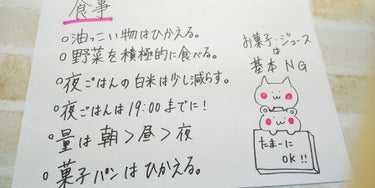 食事
○油っこい物はひかえる。
○野菜を積極的に食べる。
○夜ごはんの白米は少し減らす。
○夜ごはんは19:00までに!
○量は朝>昼>夜
○菓子パンはひかえる。
お菓子・ジュース
は
基本NG
たまーに
OK!!